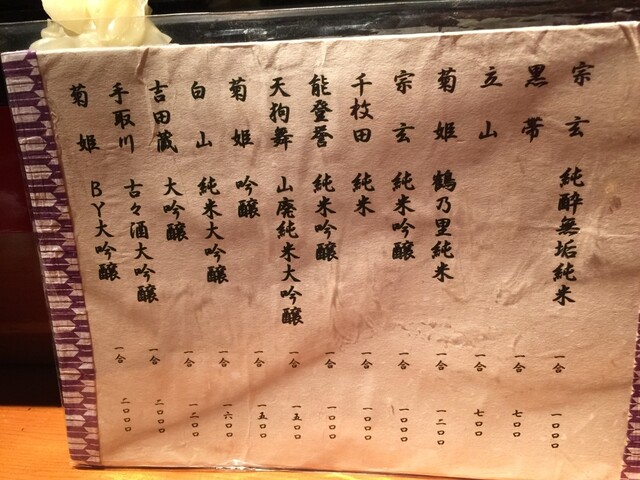 宗玄 純酔無垢純米 一合 一〇〇〇
黒帯 一合 七〇〇
立山 一合 七〇〇
菊姫 鶴乃里純米 一合 一二〇〇
宗玄 純米吟醸 一合 一〇〇〇
千枚田 純米 一合 一〇〇〇
能登誉 純米吟醸 一合 一〇〇〇
天狗舞 山廃純米大吟醸 一合 一五〇〇
菊姫 吟醸 一合 一五〇〇
白山 純米大吟醸 一合 一六〇〇
吉田蔵 大吟醸 一合 一二〇〇
手取川 古々酒大吟醸 一合 二〇〇〇
菊姫 BY大吟醸 一合 二〇〇〇